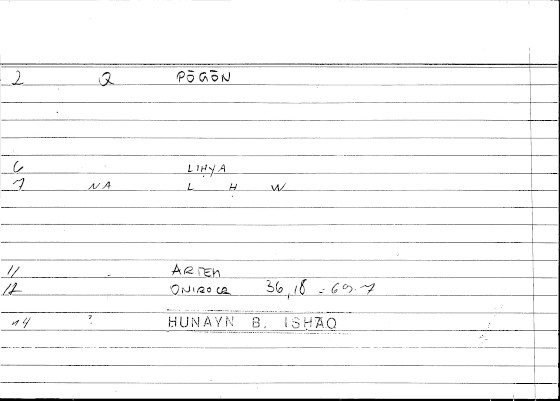 2 Q PŌGŌN
6 LIḤYA
7 NA L Ḥ W
11 ARTEM
12 ONIROCR 36,18 = 69.7
14 ? HUNAYN B. ISḤĀQ